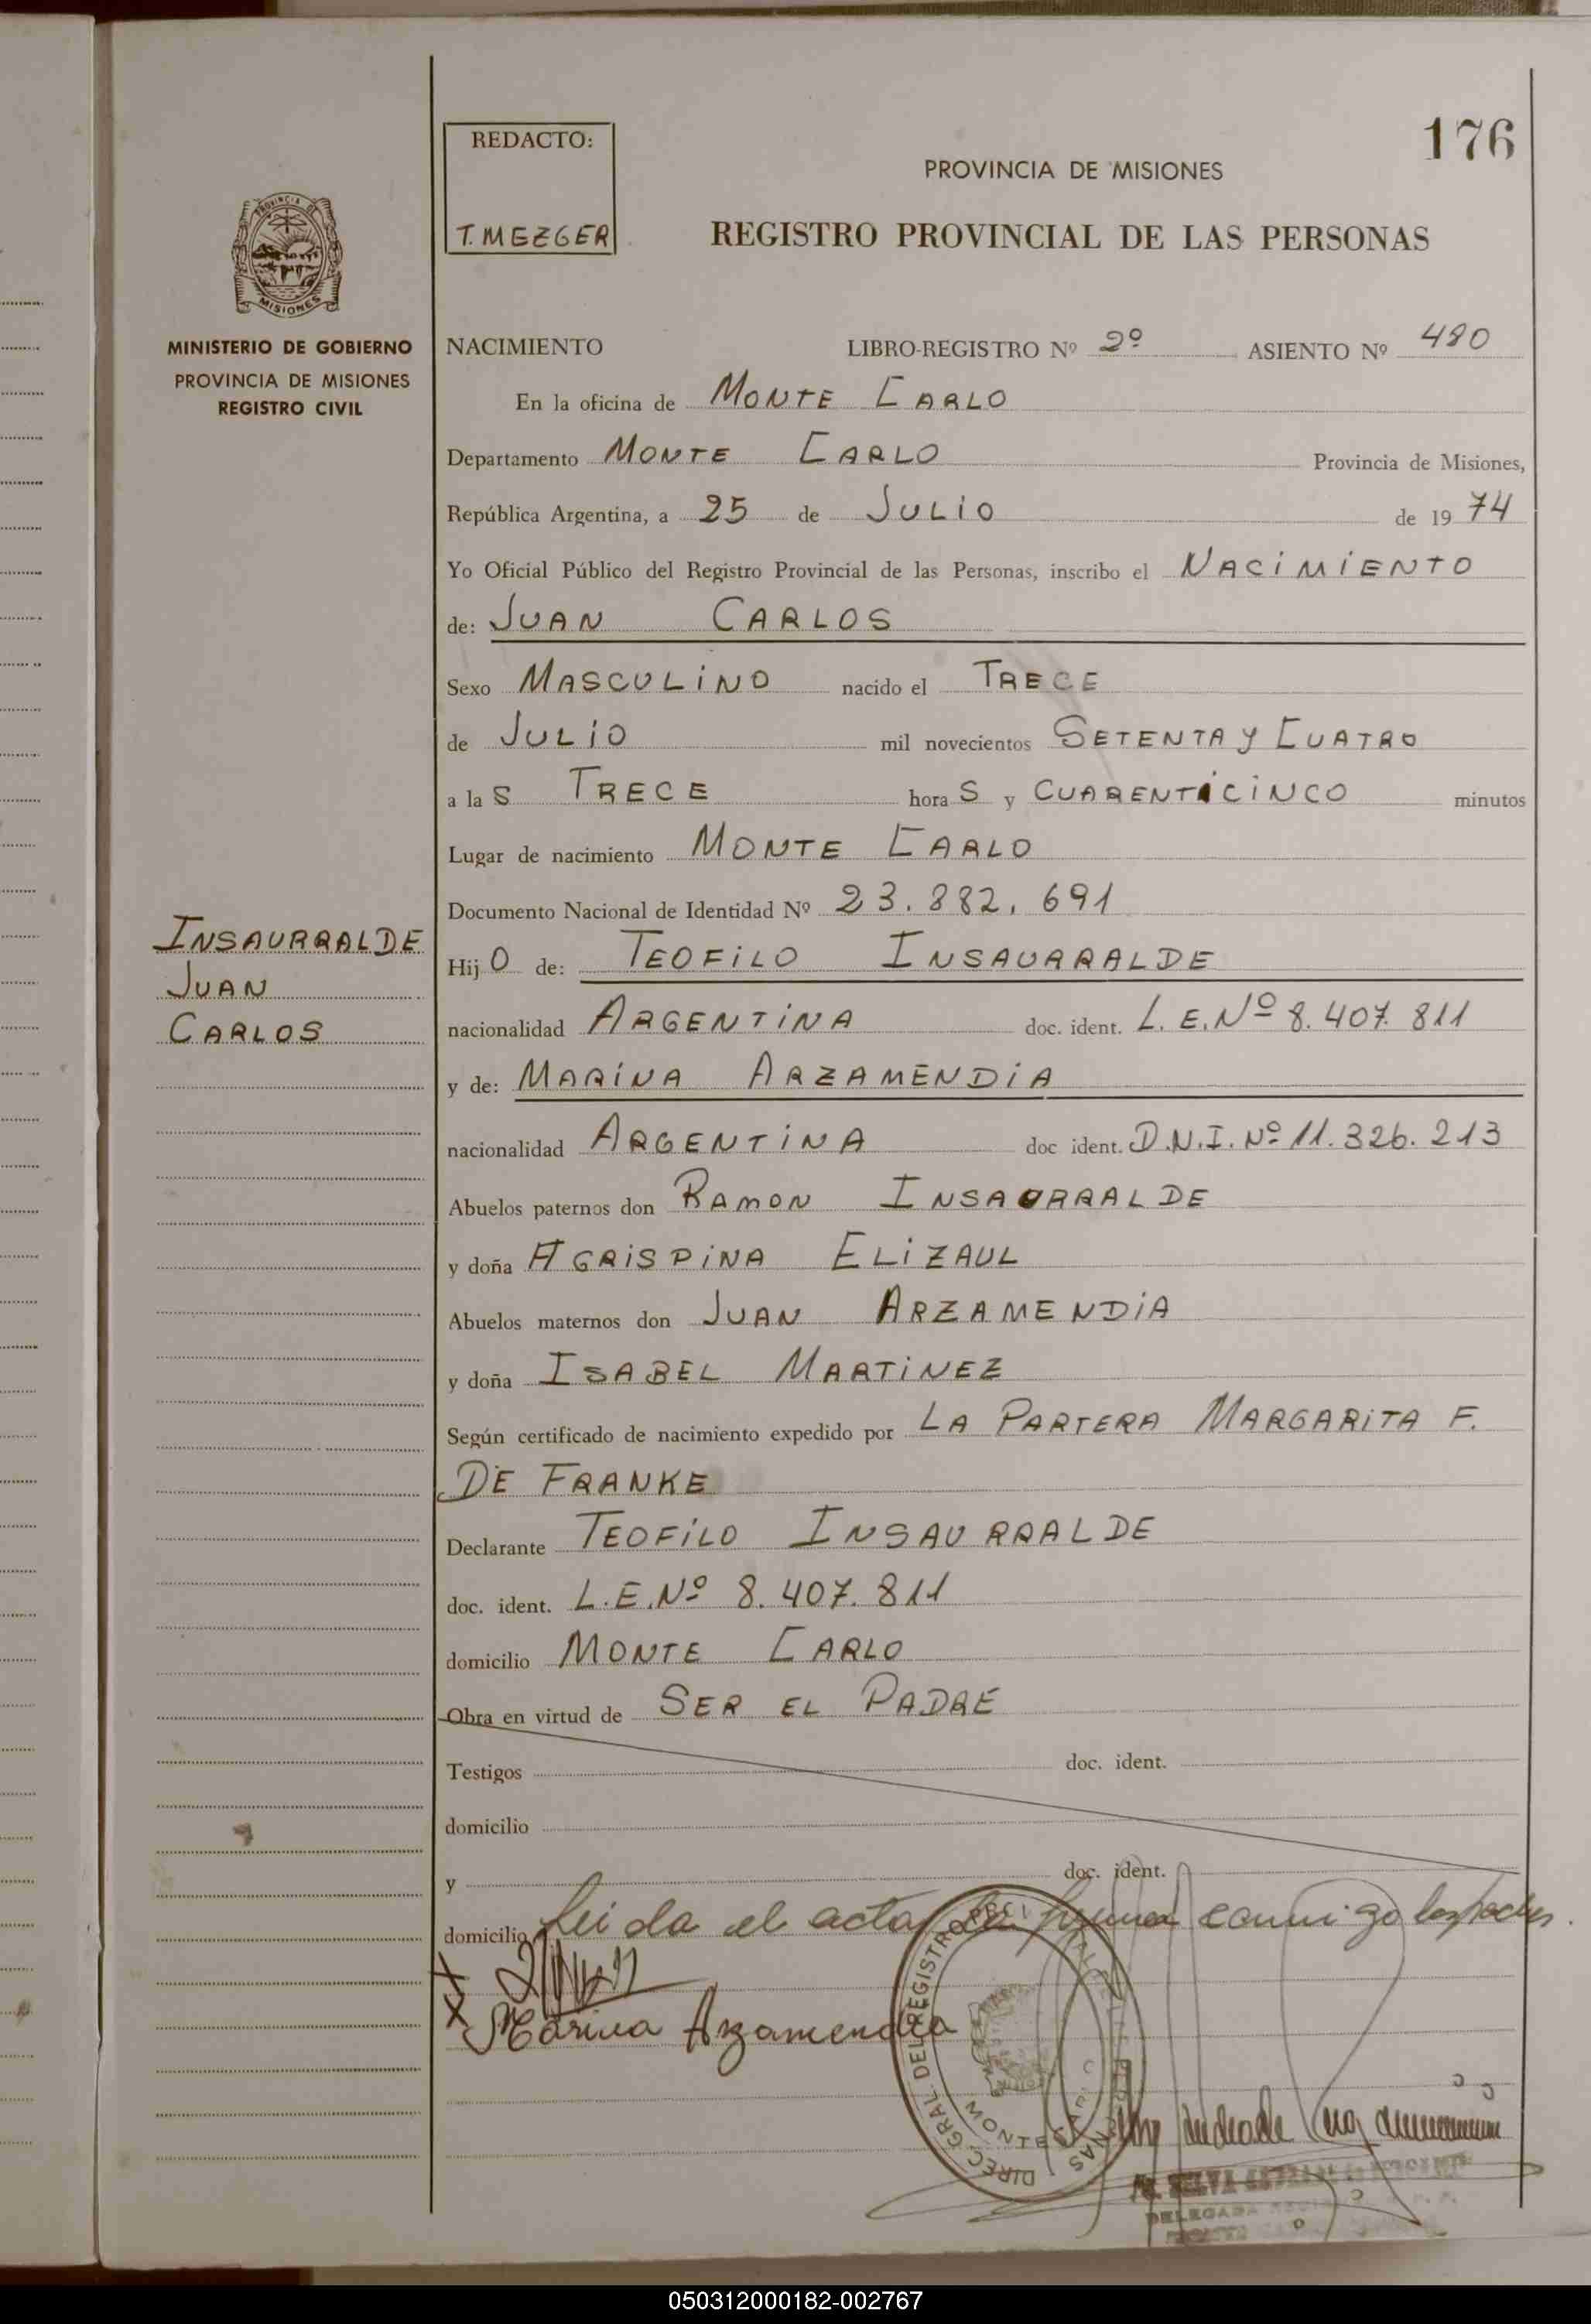 176
REDACTO:
T. MEZGER
PROVINCIA DE MISIONES
REGISTRO PROVINCIAL DE LAS PERSONAS
PROVINCIA DE
MISIONES
MINISTERIO DE GOBIERNO
PROVINCIA DE MISIONES
REGISTRO CIVIL
NACIMIENTO LIBRO-REGISTRO Nº 2º ASIENTO Nº 480
En la oficina de MONTE CARLO
Departamento MONTE CARLO Provincia de Misiones,
República Argentina, a 25 de JULIO de 1974
Yo Oficial Público del Registro Provincial de las Personas, inscribo el NACIMIENTO
de: JUAN CARLOS
Sexo MASCULINO nacido el TRECE
de JULIO mil novecientos SETENTA Y CUATRO
a la S TRECE hora S y CUARENTICINCO minutos
Lugar de nacimiento MONTE CARLO
Documento Nacional de Identidad Nº 23.882.691
INSAURRALDE
JUAN
CARLOS
Hij O de: TEOFILO INSAURRALDE
nacionalidad ARGENTINA doc. ident. L.E.Nº 8.407.811
y de: MARINA ARZAMENDIA
nacionalidad ARGENTINA doc ident. D.N.I. Nº 11.326.213
Abuelos paternos don RAMON INSAURRALDE
y doña AGRISPINA ELIZAUL
Abuelos maternos don JUAN ARZAMENDIA
y doña ISABEL MARTINEZ
Según certificado de nacimiento expedido por LA PARTERA MARGARITA F.
DE FRANKE
Declarante TEOFILO INSAURRALDE
doc. ident. L.E.Nº 8.407.811
domicilio MONTE CARLO
Obra en virtud de SER EL PADRE
Testigos doc. ident.
domicilio
y doc. ident.
domicilio Leida el acta la firman conmigo los padres.
Marina Arzamendia
DIREC. GRAL. DEL REGISTRO
MONTE CARLO
DELEGADA
050312000182-002767